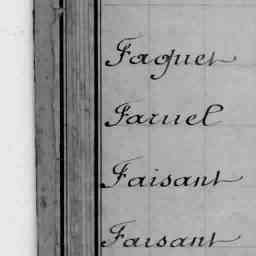 Faguet
Faruel
Faisant
Faisant